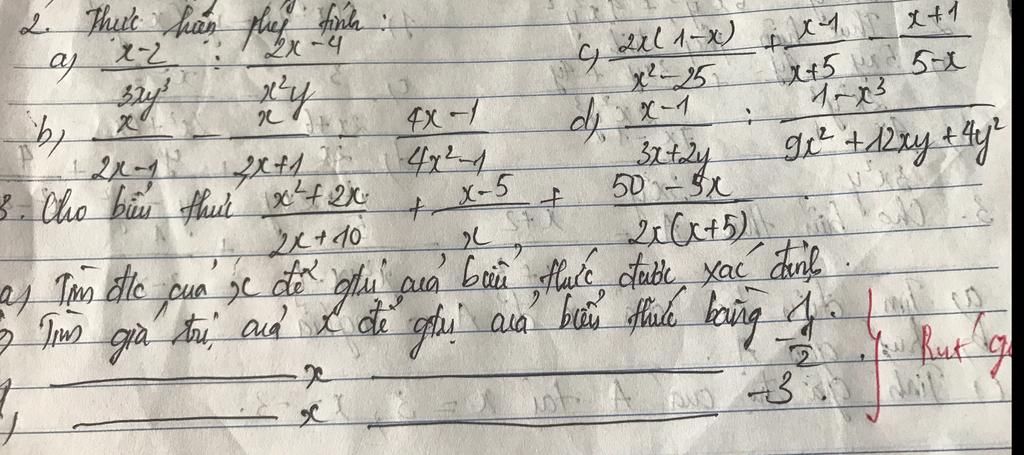 2. Thực hiện phép tính :
a) (x-2)/(3xy³) : (2x-4)/(x²y)   c) 2x(1-x)/(x²-25) + (x-1)/(x+5) - (x+1)/(5-x)
b) x/(2x-1) - x/(2x+1) : (4x-1)/(4x²-1)   d) (x-1)/(3x+2y) : (1-x³)/(9x²+12xy+4y²)
3. Cho biểu thức (x²+2x)/(2x+10) + (x-5)/x + (50-5x)/(2x(x+5))
a) Tìm đk của x để gtrị của biểu thức được xác định.
Tìm giá trị của x để gtrị của biểu thức bằng 1.
x -1/2
x -3
Rút